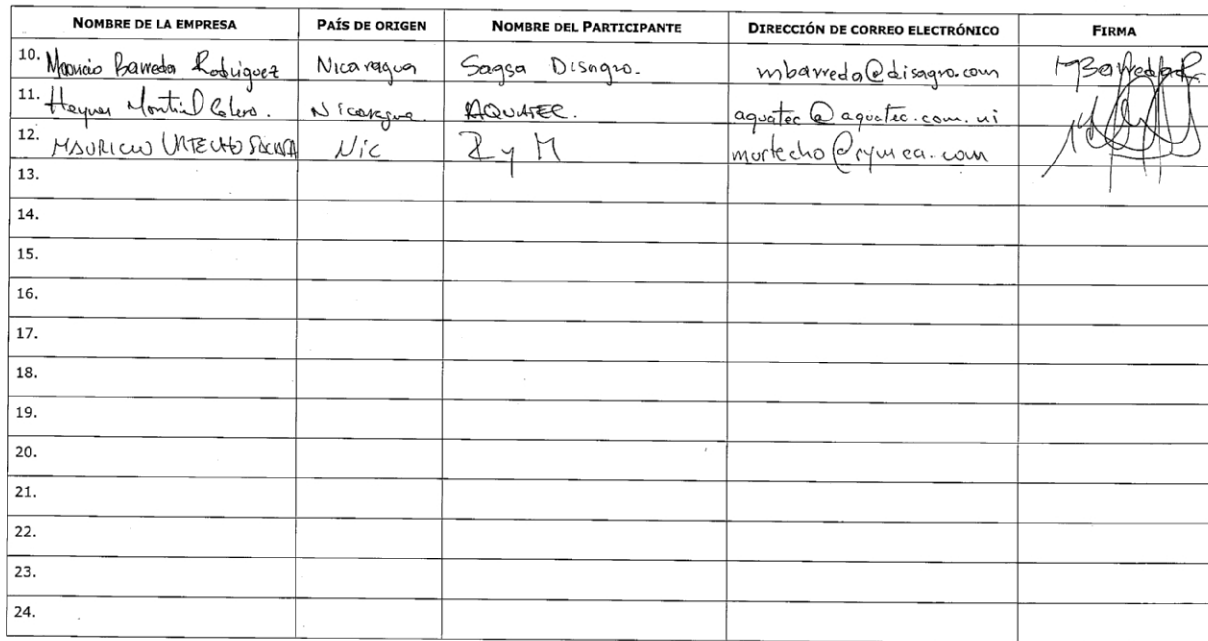 NOMBRE DE LA EMPRESA PAÍS DE ORIGEN NOMBRE DEL PARTICIPANTE DIRECCIÓN DE CORREO ELECTRÓNICO FIRMA
10. Mauricio Barreda Rodriguez Nicaragua Sagsa Disagro. mbarreda@disagro.com MBarredaR
11. Montiel Calero. Nicaragua. AQUATEC. aquatec@aquatec.com.ni
12. MAURICIO URTECHO Nic R y M murtecho@rymca.com
13.
14.
15.
16.
17.
18.
19.
20.
21.
22.
23.
24.